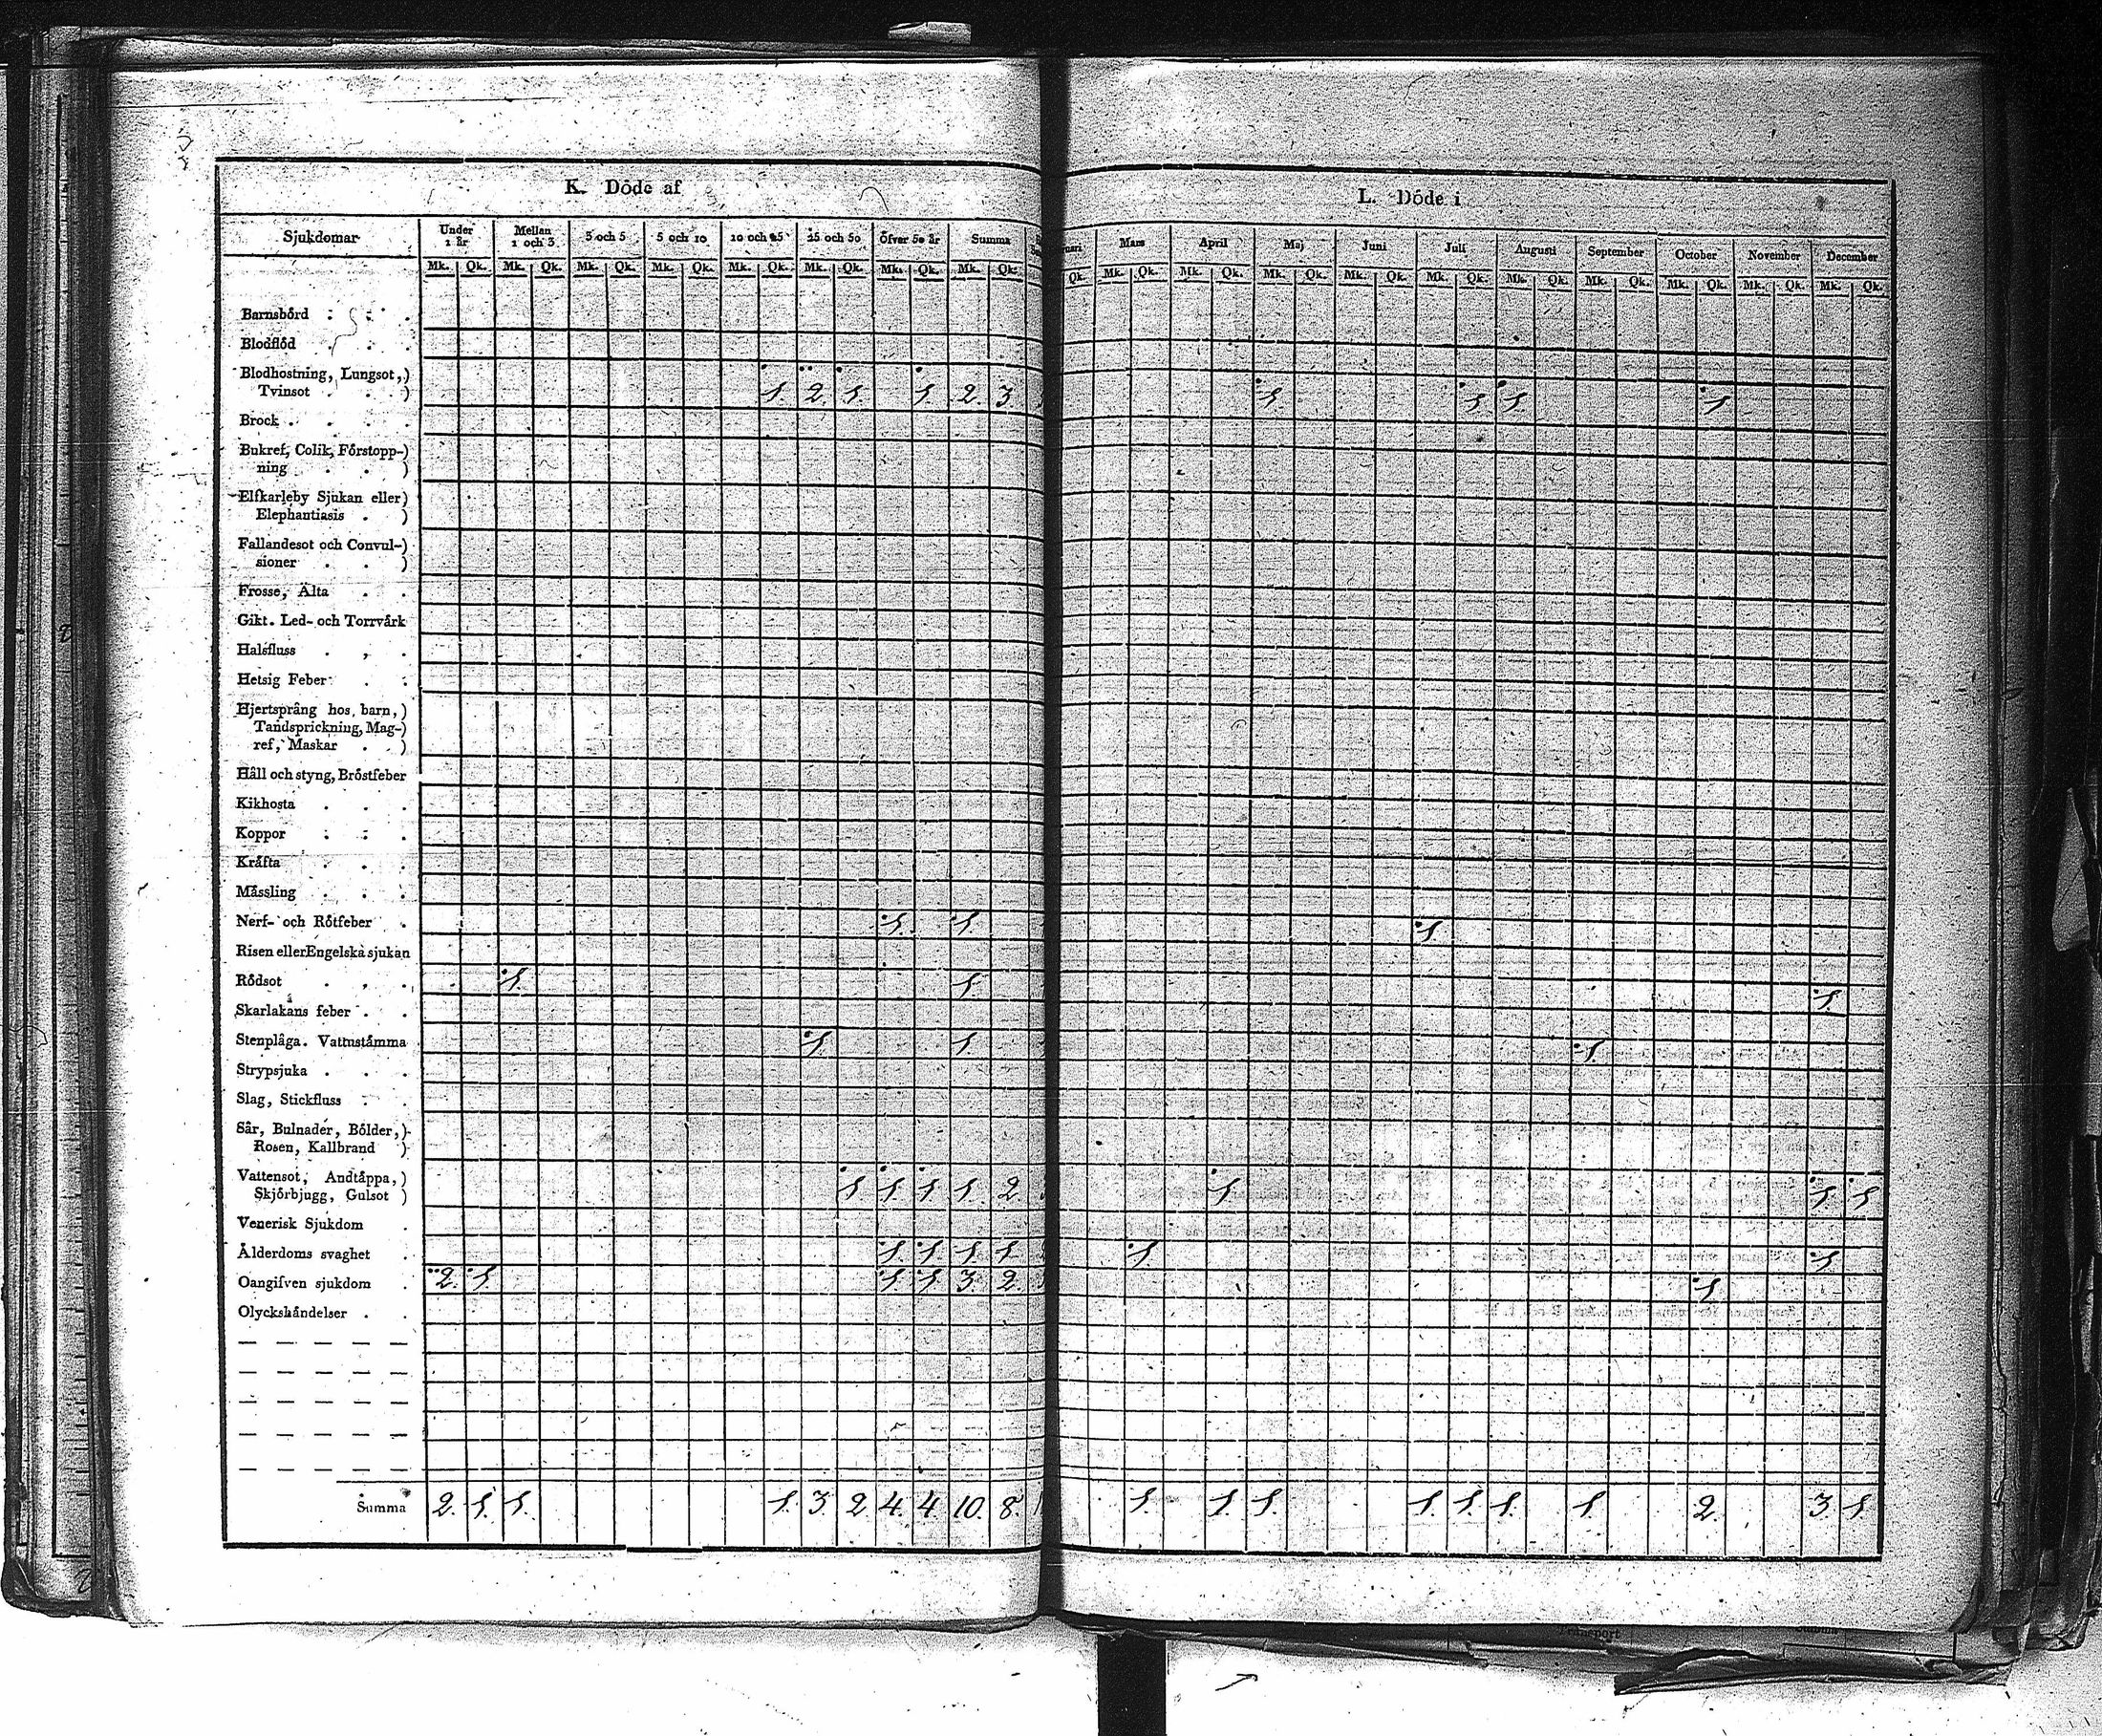 K. Döde af
L. Döde i
Sjukdomar Under 1 år Mellan 1 och 3 3 och 5 5 och 10 10 och 25 25 och 50 Öfver 50 år Summa
Mars April Maj Juni Juli Augusti September October November December
Mk. Qk. Mk. Qk. Mk. Qk. Mk. Qk. Mk. Qk. Mk. Qk. Mk. Qk. Mk. Qk.
Qk. Mk. Qk. Mk. Qk. Mk. Qk. Mk. Qk. Mk. Qk. Mk. Qk. Mk. Qk. Mk. Qk. Mk. Qk. Mk. Qk.
Barnsbörd
Blodflöd
Blodhostning, Lungsot,)
Tvinsot . . ) 1. 2. 1. 1. 2. 3 1. 1. 1. 1
Brock .
Bukref, Colik, Förstopp-)
ning . . )
Elfkarleby Sjukan eller)
Elephantiasis . )
Fallandesot och Convul-)
sioner . . )
Frosse, Älta . .
Gikt. Led- och Torrvärk
Halsfluss . , .
Hetsig Feber . .
Hjertsprång hos barn,)
Tandsprickning, Mag-)
ref, Maskar . )
Håll och styng, Bröstfeber
Kikhosta . . .
Koppor . . .
Kräfta . . .
Mässling . . .
Nerf- och Rötfeber . 1. 1. 1.
Risen eller Engelska sjukan
Rödsot . , . 1. 1. 1.
Skarlakans feber . .
Stenplåga. Vattustämma 1. 1. 1.
Strypsjuka . . .
Slag, Stickfluss . .
Sår, Bulnader, Bölder,)
Rosen, Kallbrand )
Vattensot, Andtäppa,)
Skjörbjugg, Gulsot ) 1 1. 1. 1. 2. 1. 1. 1.
Venerisk Sjukdom .
Ålderdoms svaghet . 1. 1. 1. 1. 1. 1.
Oangifven sjukdom . 2. 1. 1. 1. 3. 2. 1.
Olyckshändelser . .
Summa 2. 1. 1. 1. 3. 2 4. 4. 10. 8. 1. 1. 1. 1. 1. 1. 1. 2. 3. 1.